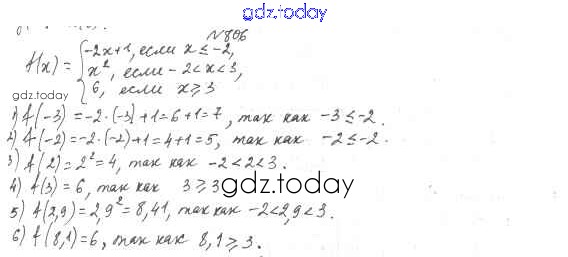 gdz.today
№806
f(x) = { -2x+1, если x ≤ -2,
x², если -2 < x < 3,
6, если x ≥ 3
gdz.today
1) f(-3) = -2·(-3)+1=6+1=7, так как -3 ≤ -2.
2) f(-2) = -2·(-2)+1=4+1=5, так как -2 ≤ -2.
3) f(2) = 2² = 4, так как -2 < 2 < 3.
4) f(3) = 6, так как 3 ≥ 3
gdz.today
5) f(2,9) = 2,9² = 8,41, так как -2 < 2,9 < 3.
6) f(8,1) = 6, так как 8,1 ≥ 3.